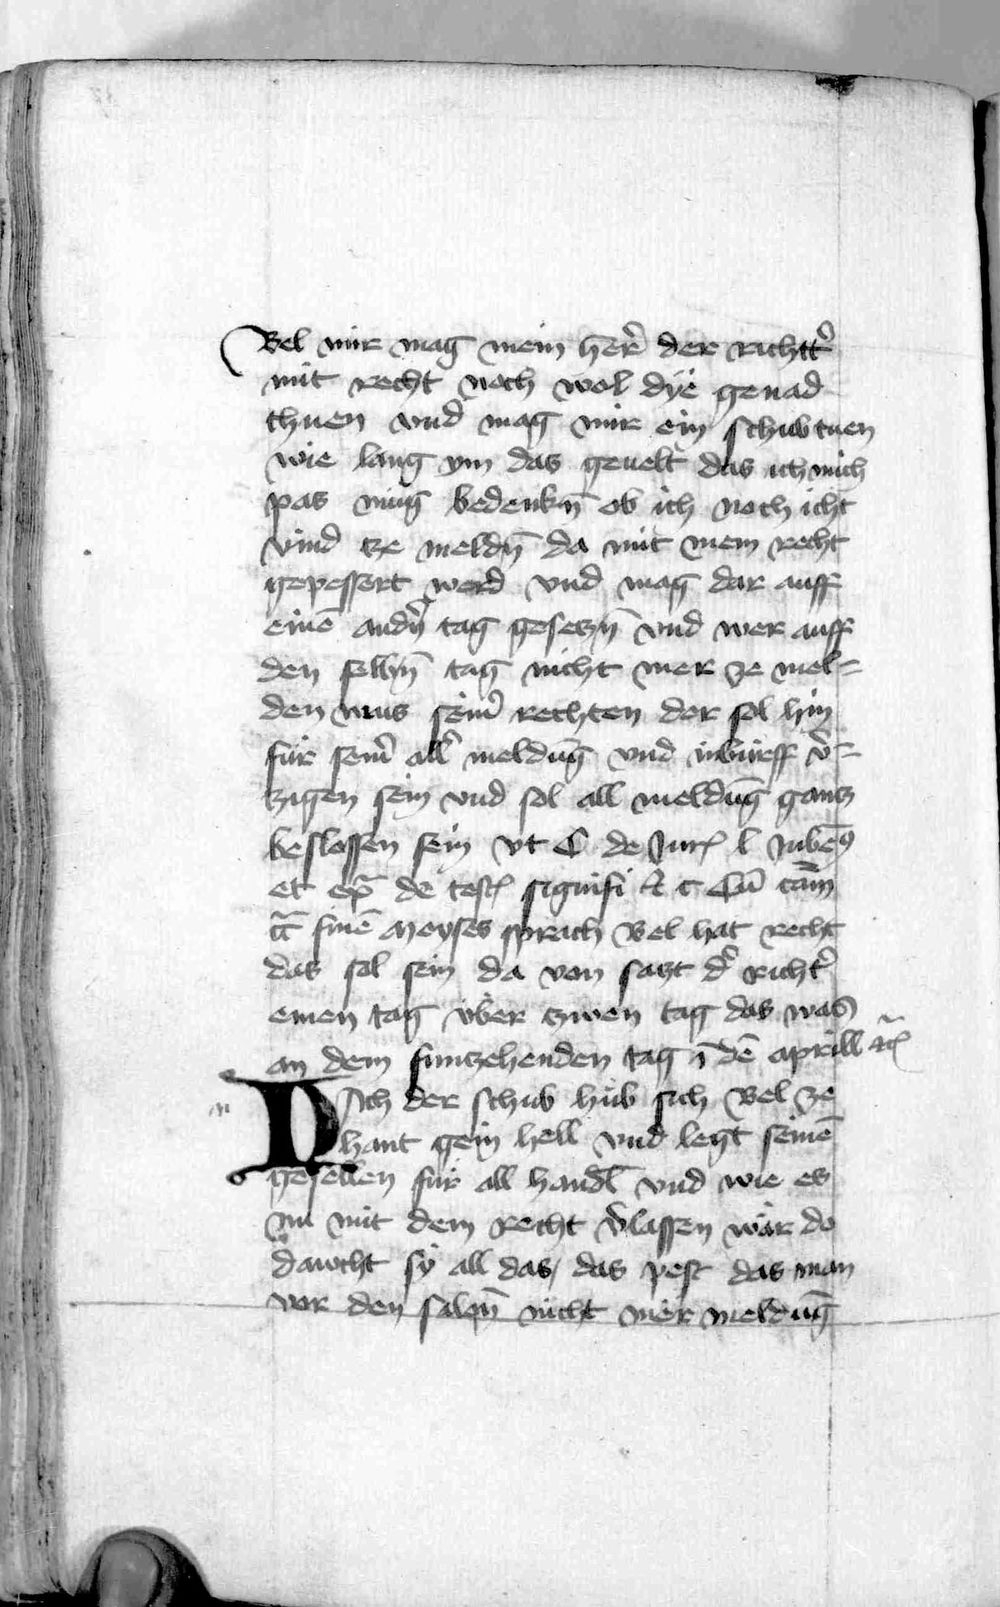 Bel mir mag mein her̄ der richtt̄
mit recht noch wol dÿe genad
thuen vnd mag mir ein schub tuen
wie lang ym das geuelt das ich mich
pas mug bedenkn̄ ob ich noch icht
vind ze meldn̄ da mit mein recht
gepessert werd vnd mag dar auff
einē andn̄ tag geseczn̄ vnd wer auff
den selbn̄ tag nicht mer ze mel-
den wais rechten der sol hin
für all meldūg vnd v̄-
zigen sein vnd sol all meldūg gantz
beslossen sein vt C de Jur l Jubem9
et de test signifi et c Cū tam̄
Meyses sprach Bel hat recht
das sol sein da von satzt d̄ richt̄
einen tag vber zwen tag das was
an dem funczehenden tag ī dē aprill etc̄
DAch der schub hub sich Bel ze
hant gein hell vnd legt seinē
gesellen für all handl vnd wie es
nu mit dem recht v̄lassen wär do
dawcht sÿ all das, das pest das man
vor den nicht mer meldūg